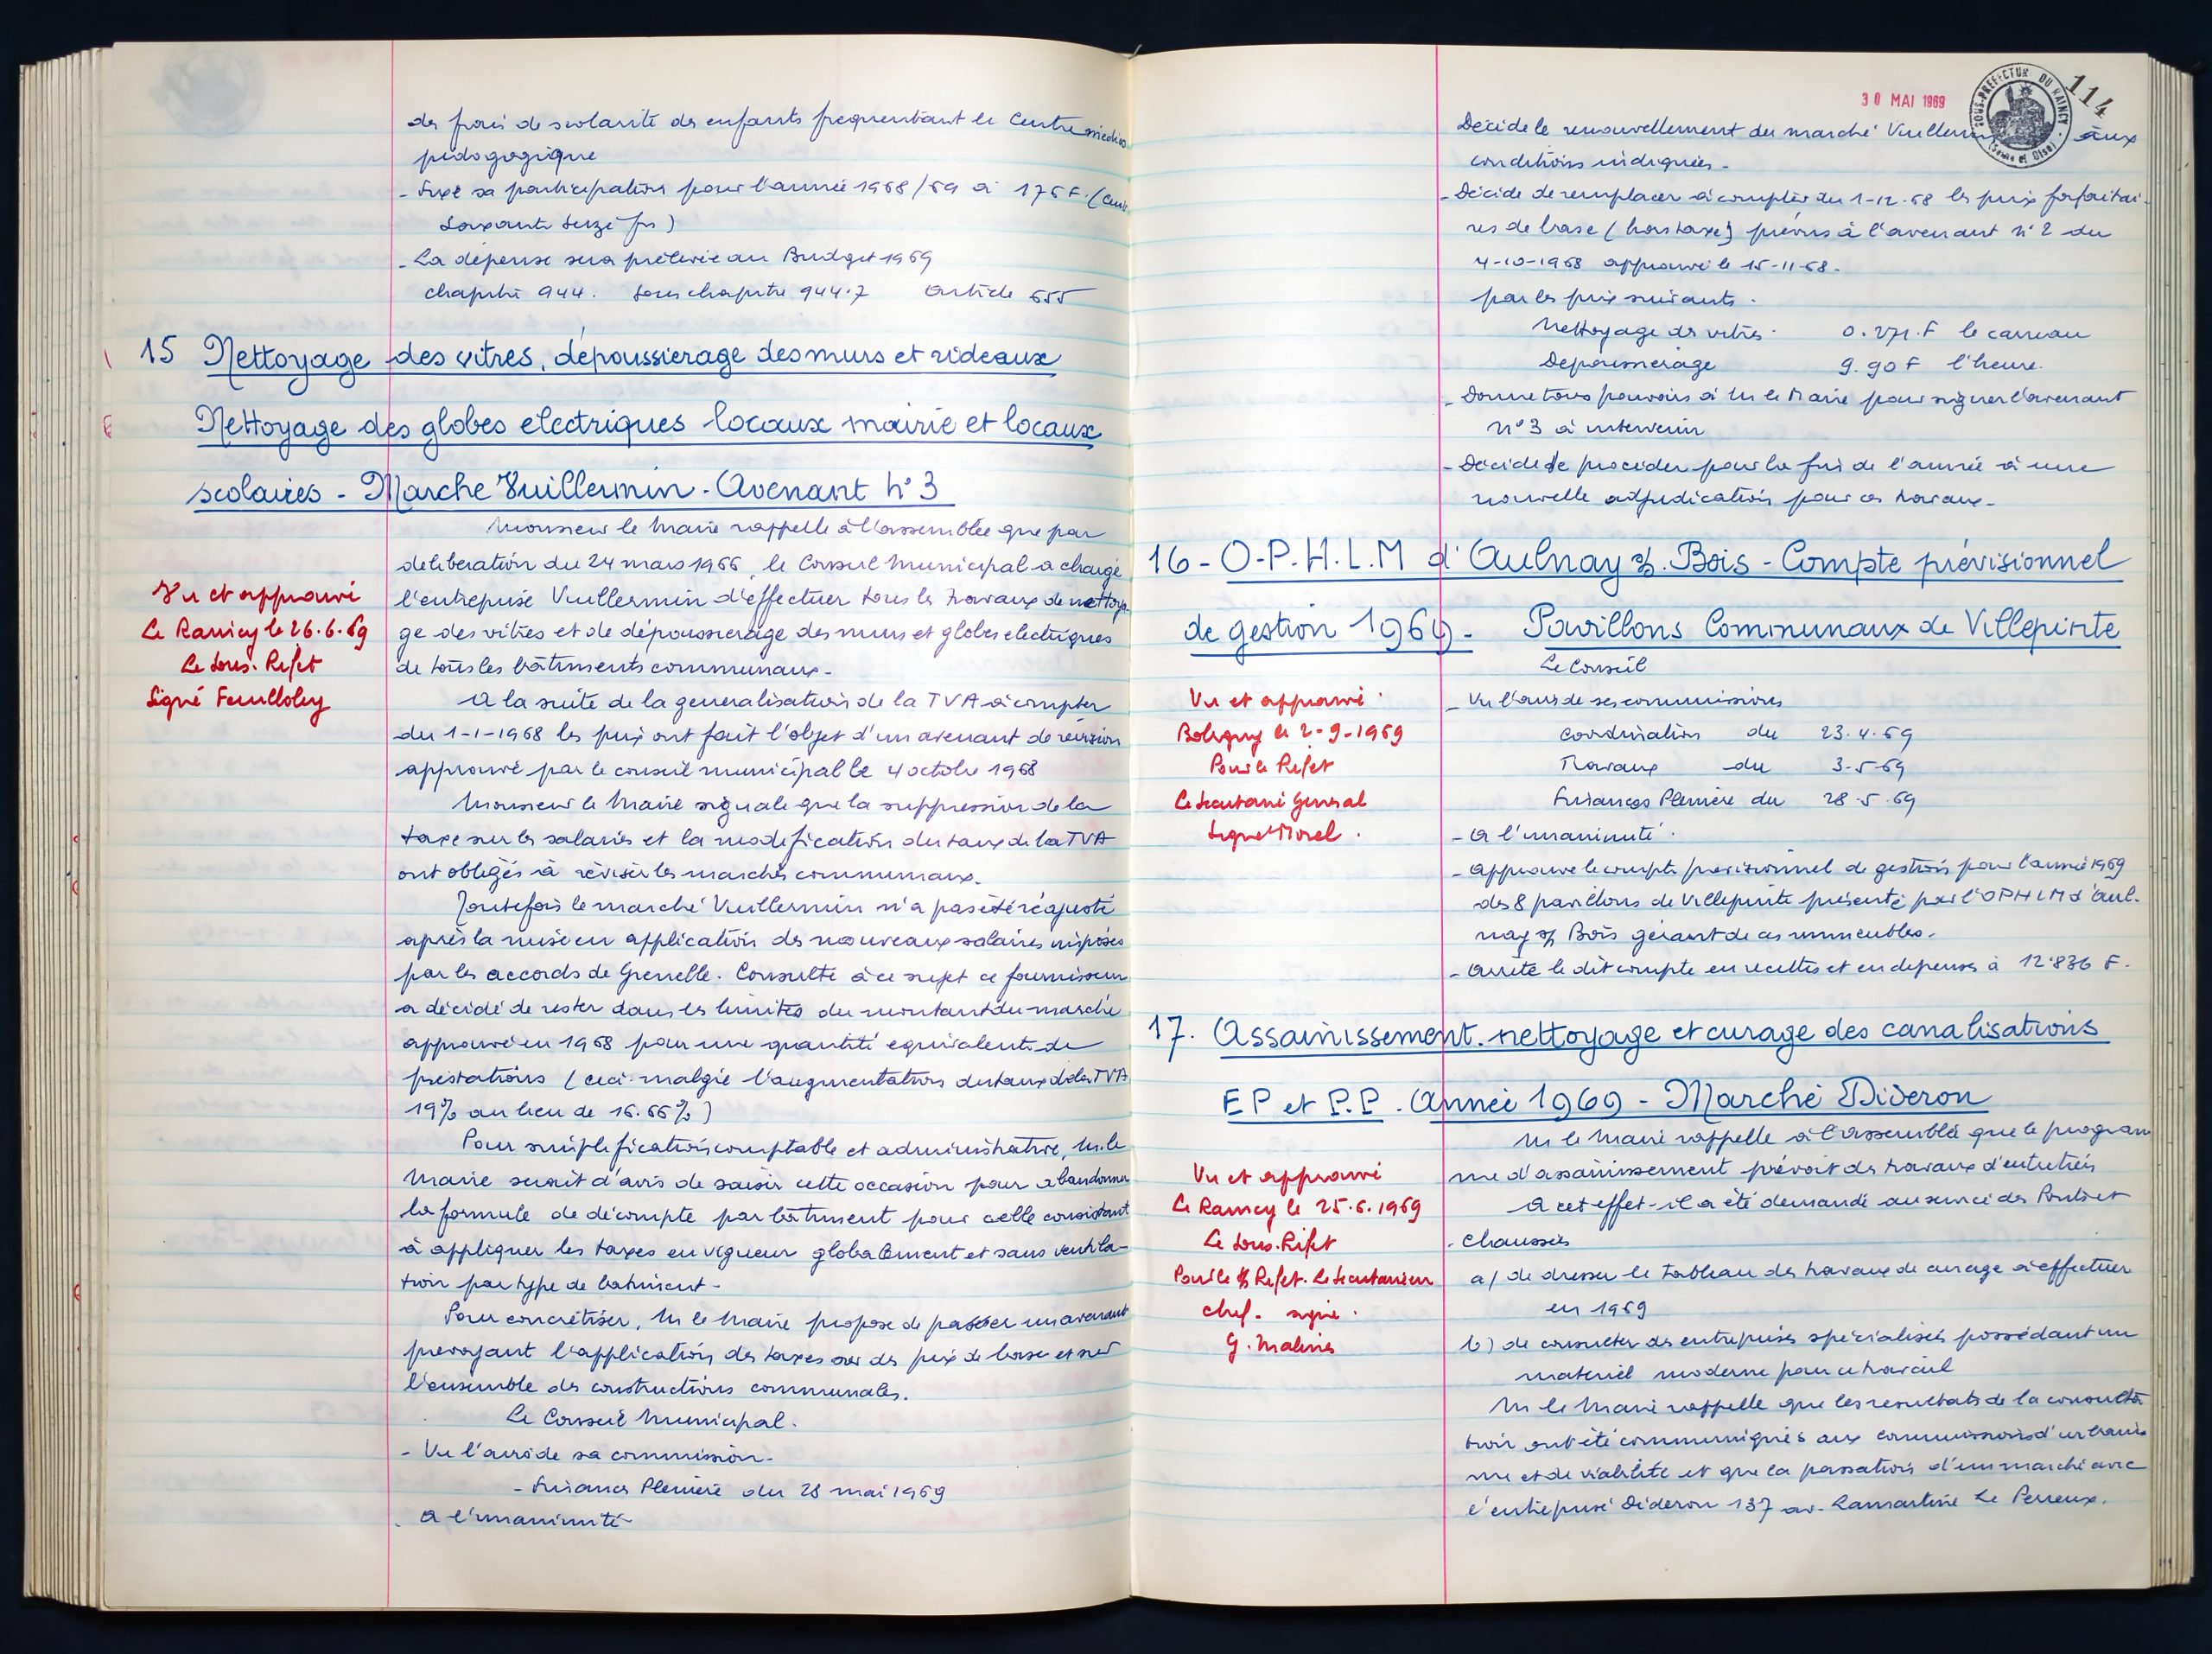 des frais de scolarité des enfants fréquentant le Centre medico
pédogogique
- Fixe sa participation pour l'année 1968/69 à 176 F. (Cent
soixante seize frs)
- La dépense sera prélevée au Budget 1969
chapitre 944. Sous chapitre 944.7 article 655
15 Nettoyage des vitres, dépoussierage des murs et rideaux
Nettoyage des globes electriques locaux mairie et locaux
scolaires - Marche Vuillermin - Avenant n° 3
Monsieur le Maire rappelle à l'assemblée que par
deliberation du 24 mars 1966, le Conseil Municipal a chargé
l'entreprise Vuillermin d'effectuer tous les travaux de nettoya-
ge des vitres et de dépoussierage des murs et globes electriques
de tous les bâtiments communaux.
Vu et approuvé
Le Raincy le 26.6.69
Le Sous. Prefet
Signé Feuilloley
A la suite de la generalisation de la TVA à compter
du 1-1-1968 les prix ont fait l'objet d'un avenant de révision
approuvé par le conseil municipal le 4 octobre 1968
Monsieur le Maire signale que la suppression de la
taxe sur les salaires et la modification du taux de la TVA
ont obligés à réviser les marchés communaux.
Toutefois le marché Vuillermin n'a pas été réajusté
après la mise en application des nouveaux salaires imposés
par les accords de Grenelle. Consulté à ce sujet ce fournisseur
a décidé de rester dans les limites du montant du marché
approuvé en 1968 pour une quantité equivalente de
prestations (ceci malgré l'augmentation du taux de la TVA
19% au lieu de 16.66%)
Pour simplification comptable et administrative, M. le
Maire serait d'avis de saisir cette occasion pour abandonner
la formule de décompte par bâtiment pour celle consistant
à appliquer les taxes en vigueur globalement et sans ventila-
tion par type de batiment.
Pour concrétiser, M le Maire propose de passer un avenant
prevoyant l'application des taxes sur des prix de base et sur
l'ensemble des constructions communales.
Le Conseil Municipal.
- Vu l'avis de sa commission.
- Finances Plénière du 28 mai 1969
- A l'unanimité
30 MAI 1969
114
SOUS-PREFECTURE DU RAINCY
(Seine et Oise)
Décide le renouvellement du marché Vuillermin aux
conditions indiquées.
- Décide de remplacer à compter du 1-12-68 les prix forfaitai-
res de base (hors taxe) prévus à l'avenant n° 2 du
4-10-1968 approuvé le 15-11-68.
par les prix suivants.
Nettoyage des vitres. 0.271.F le carreau
Depoussierage 9.90 F l'heure.
- Donne tous pouvoirs à M le Maire pour signer l'avenant
n° 3 à intervenir
- Décide de proceder pour la fin de l'année à une
nouvelle adjudication pour ces travaux.
16 - O.P.H.L.M d'Aulnay s/s. Bois - Compte prévisionnel
de gestion 1969. Pavillons Communaux de Villepinte
Le Conseil
Vu et approuvé.
Bobigny le 2-9-1969
Pour le Prefet
Le Secretaire General
Signé Morel.
- Vu l'avis de ses commissions
Coordination du 23.4.69
Travaux du 3-5-69
Finances Plenière du 28.5.69
- A l'unanimité.
- Approuve le compte previsionnel de gestion pour l'année 1969
des 8 pavillons de Villepinte présenté par l'OPHLM d'Aul-
nay s/s Bois gérant de ces immeubles.
- Arrête le dit compte en recettes et en depenses à 12.836 F.
17. Assainissement. nettoyage et curage des canalisations
EP et P.P. Année 1969 - Marché Dideron
M le Maire rappelle à l'Assemblée que le program
me d'assainissement prévoit des travaux d'entretien
A cet effet il a été demandé au service des Ponts et
Chaussées
a) de dresser le tableau des travaux de curage à effectuer
en 1969
b) de consulter des entreprises spécialisées possédant un
materiel moderne pour ce travail
Vu et approuvé
Le Raincy le 25.6.1969
Le Sous. Prefet
Pour le S/s Prefet. Le Secretaire en
chef. signé.
G. Malines
M le Maire rappelle que les resultats de la consulta
tion ont été communiqués aux commissions d'urbanis
me et de viabilité et que la passation d'un marché avec
l'entreprise Dideron 137 av. Lamartine Le Perreux.